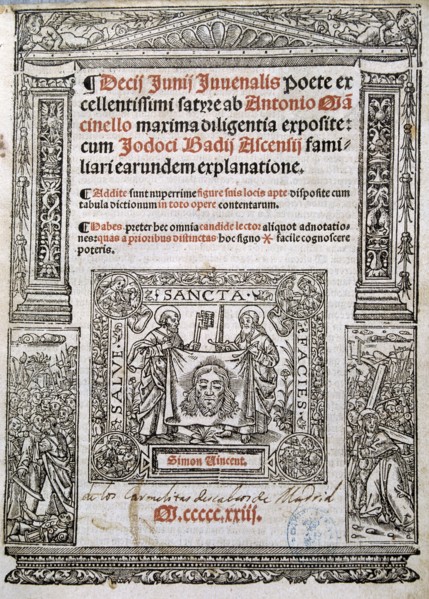 ¶Decij Junij Juuenalis poete ex
cellentissimi satyre ab Antonio Mā
cinello maxima diligentia exposite:
cum Jodoci Badij Ascensij fami-
liari earundem explanatione.
¶Addite sunt nuperrime figure suis locis apte disposite cum
tabula dictionum in toto opere contentarum.
¶Habes preter hec omnia candide lector aliquot adnotatio-
nes: quas a prioribus distinctas hoc signo ⁎ facile cognoscere
poteris.
SALVE
SANCTA
FACIES
Simon Uincent.
de los Carmelitas descalços de Madrid
M.ccccc.xxiij.